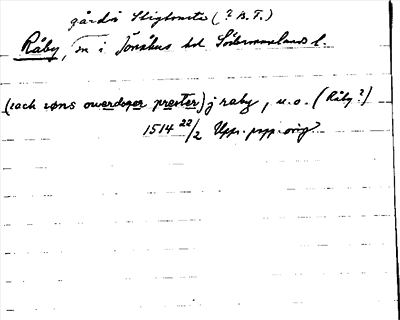 gård i Stigtomta (? B.T.)
Råby, sn i Jönåkers hd Södermanlands l.
(zach vøns owerdoger prester) j raby, u.o. (Råby?)
1514 22/2 Upps. papp. orig.